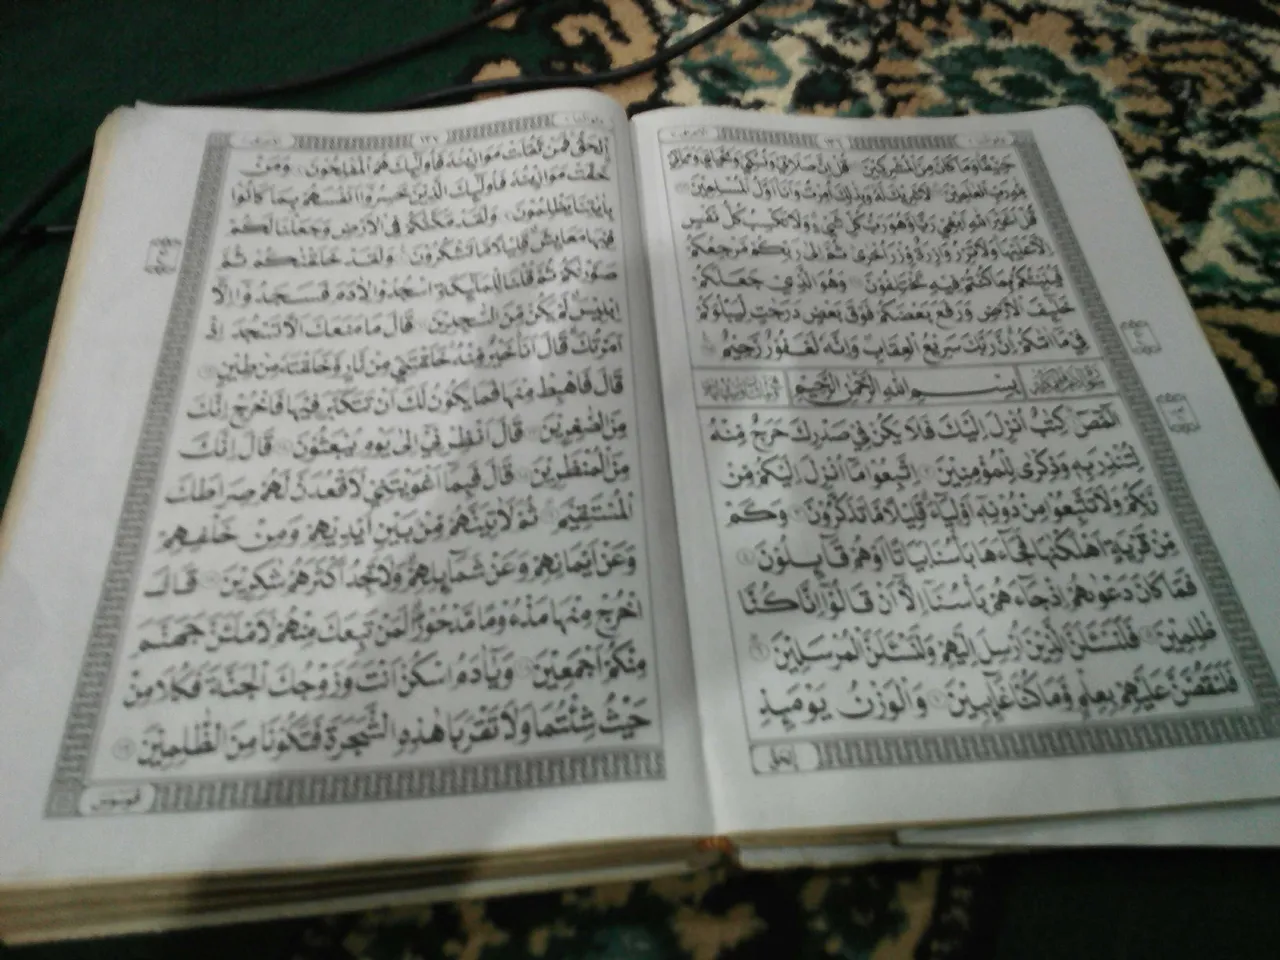 حَنِيْفًا وَمَا كَانَ مِنَ الْمُشْرِكِيْنَ قُلْ اِنَّ صَلَاتِيْ وَنُسُكِيْ وَمَحْيَايَ وَمَمَاتِيْ
لِلّٰهِ رَبِّ الْعٰلَمِيْنَ لَا شَرِيْكَ لَهٗ وَبِذٰلِكَ اُمِرْتُ وَاَنَا اَوَّلُ الْمُسْلِمِيْنَ
قُلْ اَغَيْرَ اللّٰهِ اَبْغِيْ رَبًّا وَهُوَ رَبُّ كُلِّ شَيْءٍ وَلَا تَكْسِبُ كُلُّ نَفْسٍ
اِلَّا عَلَيْهَا وَلَا تَزِرُ وَازِرَةٌ وِّزْرَ اُخْرٰى ثُمَّ اِلٰى رَبِّكُمْ مَّرْجِعُكُمْ
فَيُنَبِّئُكُمْ بِمَا كُنْتُمْ فِيْهِ تَخْتَلِفُوْنَ وَهُوَ الَّذِيْ جَعَلَكُمْ
خَلٰٓئِفَ الْاَرْضِ وَرَفَعَ بَعْضَكُمْ فَوْقَ بَعْضٍ دَرَجٰتٍ لِّيَبْلُوَكُمْ
فِيْ مَآ اٰتٰىكُمْ اِنَّ رَبَّكَ سَرِيْعُ الْعِقَابِ وَاِنَّهٗ لَغَفُوْرٌ رَّحِيْمٌ
بِسْمِ اللّٰهِ الرَّحْمٰنِ الرَّحِيْمِ
الٓمٓصٓ كِتٰبٌ اُنْزِلَ اِلَيْكَ فَلَا يَكُنْ فِيْ صَدْرِكَ حَرَجٌ مِّنْهُ
لِتُنْذِرَ بِهٖ وَذِكْرٰى لِلْمُؤْمِنِيْنَ اِتَّبِعُوْا مَآ اُنْزِلَ اِلَيْكُمْ مِّنْ
رَّبِّكُمْ وَلَا تَتَّبِعُوْا مِنْ دُوْنِهٖٓ اَوْلِيَآءَ قَلِيْلًا مَّا تَذَكَّرُوْنَ وَكَمْ
مِّنْ قَرْيَةٍ اَهْلَكْنٰهَا فَجَآءَهَا بَأْسُنَا بَيَاتًا اَوْ هُمْ قَآئِلُوْنَ
فَمَا كَانَ دَعْوٰىهُمْ اِذْ جَآءَهُمْ بَأْسُنَآ اِلَّآ اَنْ قَالُوْٓا اِنَّا كُنَّا
ظٰلِمِيْنَ فَلَنَسْـَٔلَنَّ الَّذِيْنَ اُرْسِلَ اِلَيْهِمْ وَلَنَسْـَٔلَنَّ الْمُرْسَلِيْنَ
فَلَنَقُصَّنَّ عَلَيْهِمْ بِعِلْمٍ وَّمَا كُنَّا غَآئِبِيْنَ وَالْوَزْنُ يَوْمَئِذِ
الْحَقُّ
١٣٦
اِۨلْحَقُّ فَمَنْ ثَقُلَتْ مَوَازِيْنُهٗ فَاُولٰٓئِكَ هُمُ الْمُفْلِحُوْنَ وَمَنْ
خَفَّتْ مَوَازِيْنُهٗ فَاُولٰٓئِكَ الَّذِيْنَ خَسِرُوْٓا اَنْفُسَهُمْ بِمَا كَانُوْا
بِاٰيٰتِنَا يَظْلِمُوْنَ وَلَقَدْ مَكَّنّٰكُمْ فِى الْاَرْضِ وَجَعَلْنَا لَكُمْ
فِيْهَا مَعَايِشَ قَلِيْلًا مَّا تَشْكُرُوْنَ وَلَقَدْ خَلَقْنٰكُمْ ثُمَّ
صَوَّرْنٰكُمْ ثُمَّ قُلْنَا لِلْمَلٰٓئِكَةِ اسْجُدُوْا لِاٰدَمَ فَسَجَدُوْٓا اِلَّآ
اِبْلِيْسَ لَمْ يَكُنْ مِّنَ السّٰجِدِيْنَ قَالَ مَا مَنَعَكَ اَلَّا تَسْجُدَ اِذْ
اَمَرْتُكَ قَالَ اَنَا خَيْرٌ مِّنْهُ خَلَقْتَنِيْ مِنْ نَّارٍ وَّخَلَقْتَهٗ مِنْ طِيْنٍ
قَالَ فَاهْبِطْ مِنْهَا فَمَا يَكُوْنُ لَكَ اَنْ تَتَكَبَّرَ فِيْهَا فَاخْرُجْ اِنَّكَ
مِنَ الصّٰغِرِيْنَ قَالَ اَنْظِرْنِيْٓ اِلٰى يَوْمِ يُبْعَثُوْنَ قَالَ اِنَّكَ
مِنَ الْمُنْظَرِيْنَ قَالَ فَبِمَآ اَغْوَيْتَنِيْ لَاَقْعُدَنَّ لَهُمْ صِرَاطَكَ
الْمُسْتَقِيْمَ ثُمَّ لَاٰتِيَنَّهُمْ مِّنْۢ بَيْنِ اَيْدِيْهِمْ وَمِنْ خَلْفِهِمْ
وَعَنْ اَيْمَانِهِمْ وَعَنْ شَمَآئِلِهِمْ وَلَا تَجِدُ اَكْثَرَهُمْ شٰكِرِيْنَ قَالَ
اخْرُجْ مِنْهَا مَذْءُوْمًا مَّدْحُوْرًا لَمَنْ تَبِعَكَ مِنْهُمْ لَاَمْلَـَٔنَّ جَهَنَّمَ
مِنْكُمْ اَجْمَعِيْنَ وَيٰٓاٰدَمُ اسْكُنْ اَنْتَ وَزَوْجُكَ الْجَنَّةَ فَكُلَا مِنْ
حَيْثُ شِئْتُمَا وَلَا تَقْرَبَا هٰذِهِ الشَّجَرَةَ فَتَكُوْنَا مِنَ الظّٰلِمِيْنَ
فَوَسْوَسَ